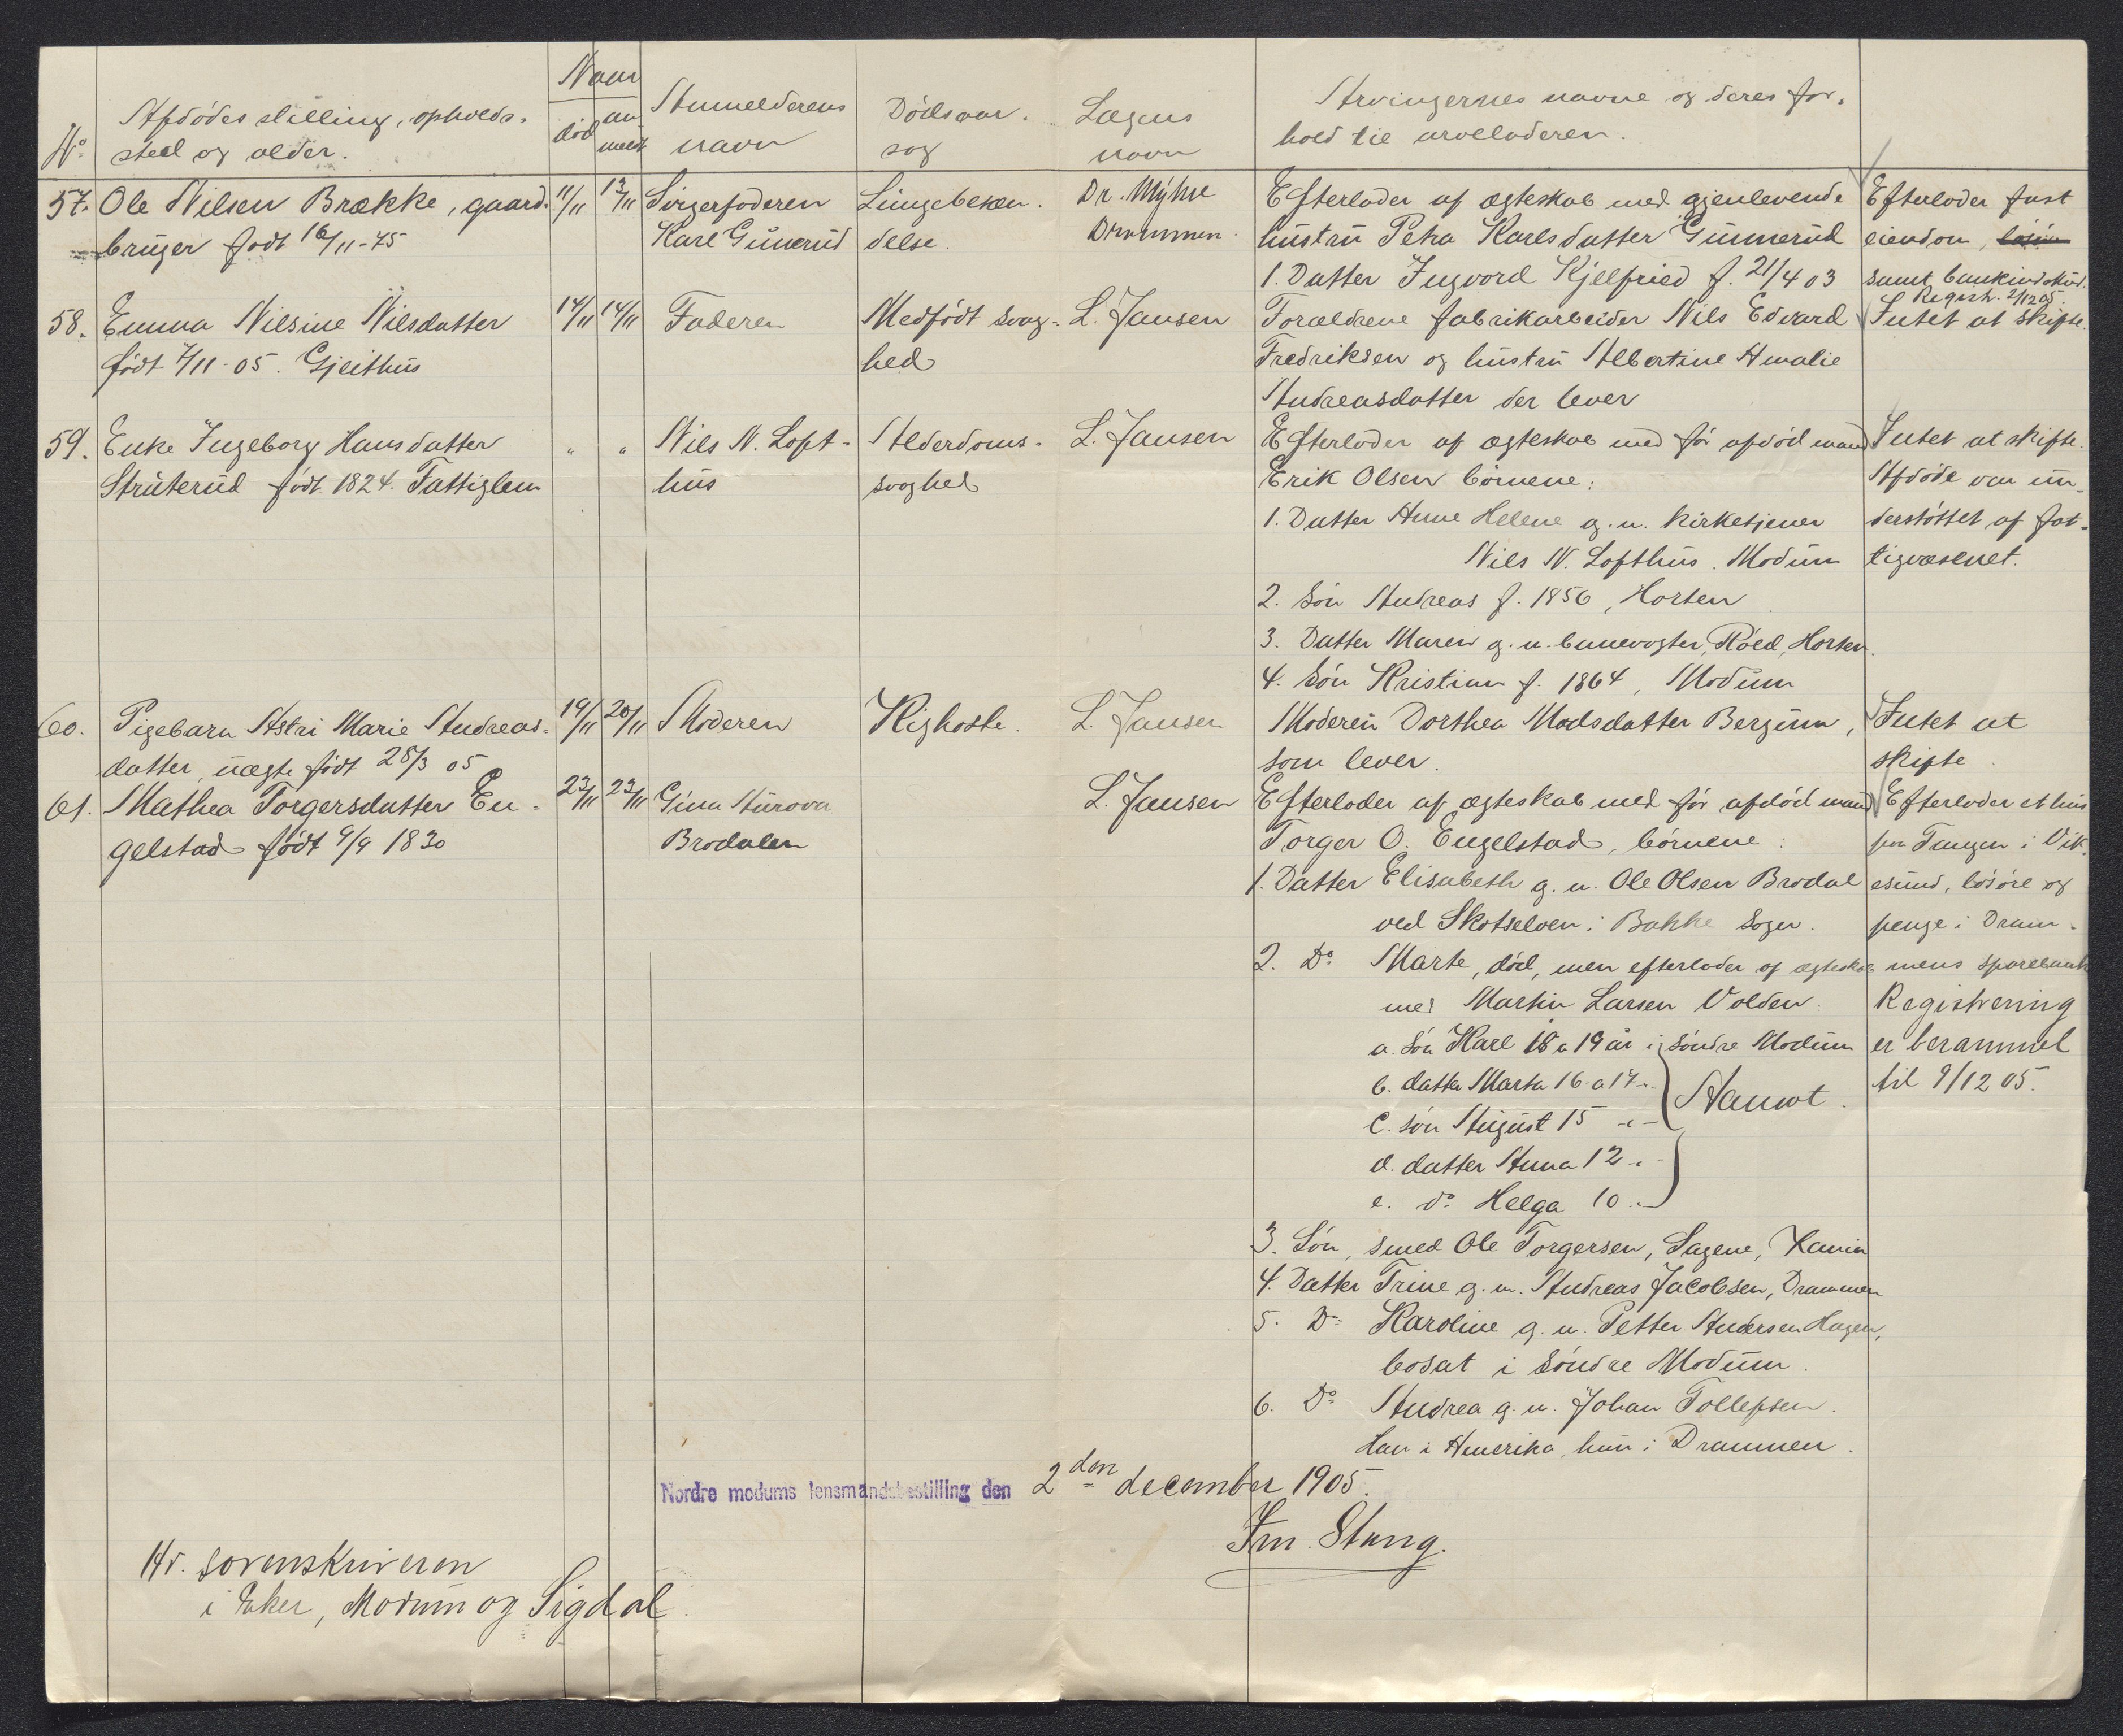 Naar
No Afdødes stilling, opholds- død an- Anmelderens Dødsaar- Lægens Arvingernes navne og deres for-
sted og alder. meldt navn sag navn hold til arveladeren.
57. Ole Nilsen Brække, gaard- 11/11 13/11 Svigerfaderen Lungebetæn- Dr. Myhre Efterlader af ægteskab med gjenlevende Efterlader fast
bruger født 16/11-75 Karl Gunerud delse. Drammen. hustru Petra Karlsdatter Gunnerud eiendom, løsøre
1. Datter Ingvord Kjelfried f. 21/4 03 samt bankindskud.
Registr. 2/12 05.
58. Emma Nilsine Nilsdatter 14/11 14/11 Faderen Medfødt svag- L. Jansen Forældrene fabrikarbeider Nils Edvard Intet at skifte.
født 7/11-05. Gjeithus hed Fredriksen og hustru Albertine Amalie
Andreasdatter der lever
59. Enke Ingeborg Hansdatter " " Nils N. Loft- Alderdoms- L. Jansen Efterlader af ægteskab med før afdød mand Intet at skifte.
Struterud født 1824. Fattiglem hus svaghed Erik Olsen børnene: Afdøde var un-
1. Datter Anne Helene g. m. kirketjener derstøttet af fat-
Nils N. Lofthus. Modum tigvæsenet.
2. Søn Andreas f. 1856, Horten
3. Datter Maren g. m. banevogter, Røed, Horten.
4. Søn Kristian f. 1864, Modum
60. Pigebarn Astri Marie Andreas- 19/11 20/11 Moderen Kighoste. L. Jansen Moderen Dorthea Madsdatter Bergum, Intet at
datter, uægte født 28/3 05 som lever. skifte.
61. Mathea Torgersdatter En- 23/11 23/11 Gina Aurora L. Jansen Efterlader af ægteskab med før afdød mand Efterlader et hus
gelstad født 9/9 1830 Brodalen Torger O. Engelstad, børnene: paa Tangen i Vik-
1. Datter Elisabeth g. m. Ole Olsen Brodal esund, løsøre og
ved Skotselven i Bakke sogn. penge i Dram-
2. Do Marte, død, men efterlader af ægteskab mens sparebank
med Martin Larsen Volden. Registrering
a. Søn Karl 18 a 19 år i søndre Modum er berammet
b. datter Marta 16 a 17 " - til 9/12 05.
c. søn August 15 - " - Namot.
d. datter Anna 12 " -
e. do Helga 10 " -
3. Søn, smed Ole Torgersen, Sagene, Xania
4. Datter Trine g. m. Andreas Jacobsen, Drammen
5. Do Karoline g. m. Petter Andersen Hagen,
bosat i søndre Modum.
6. Do Andrea g. m. Johan Tollefsen.
Han i Amerika, hun i Drammen.
Nordre modums lensmandsbestilling den 2den december 1905.
Fm. Stang.
Hr. sorenskriveren
i Eker, Modum og Sigdal.